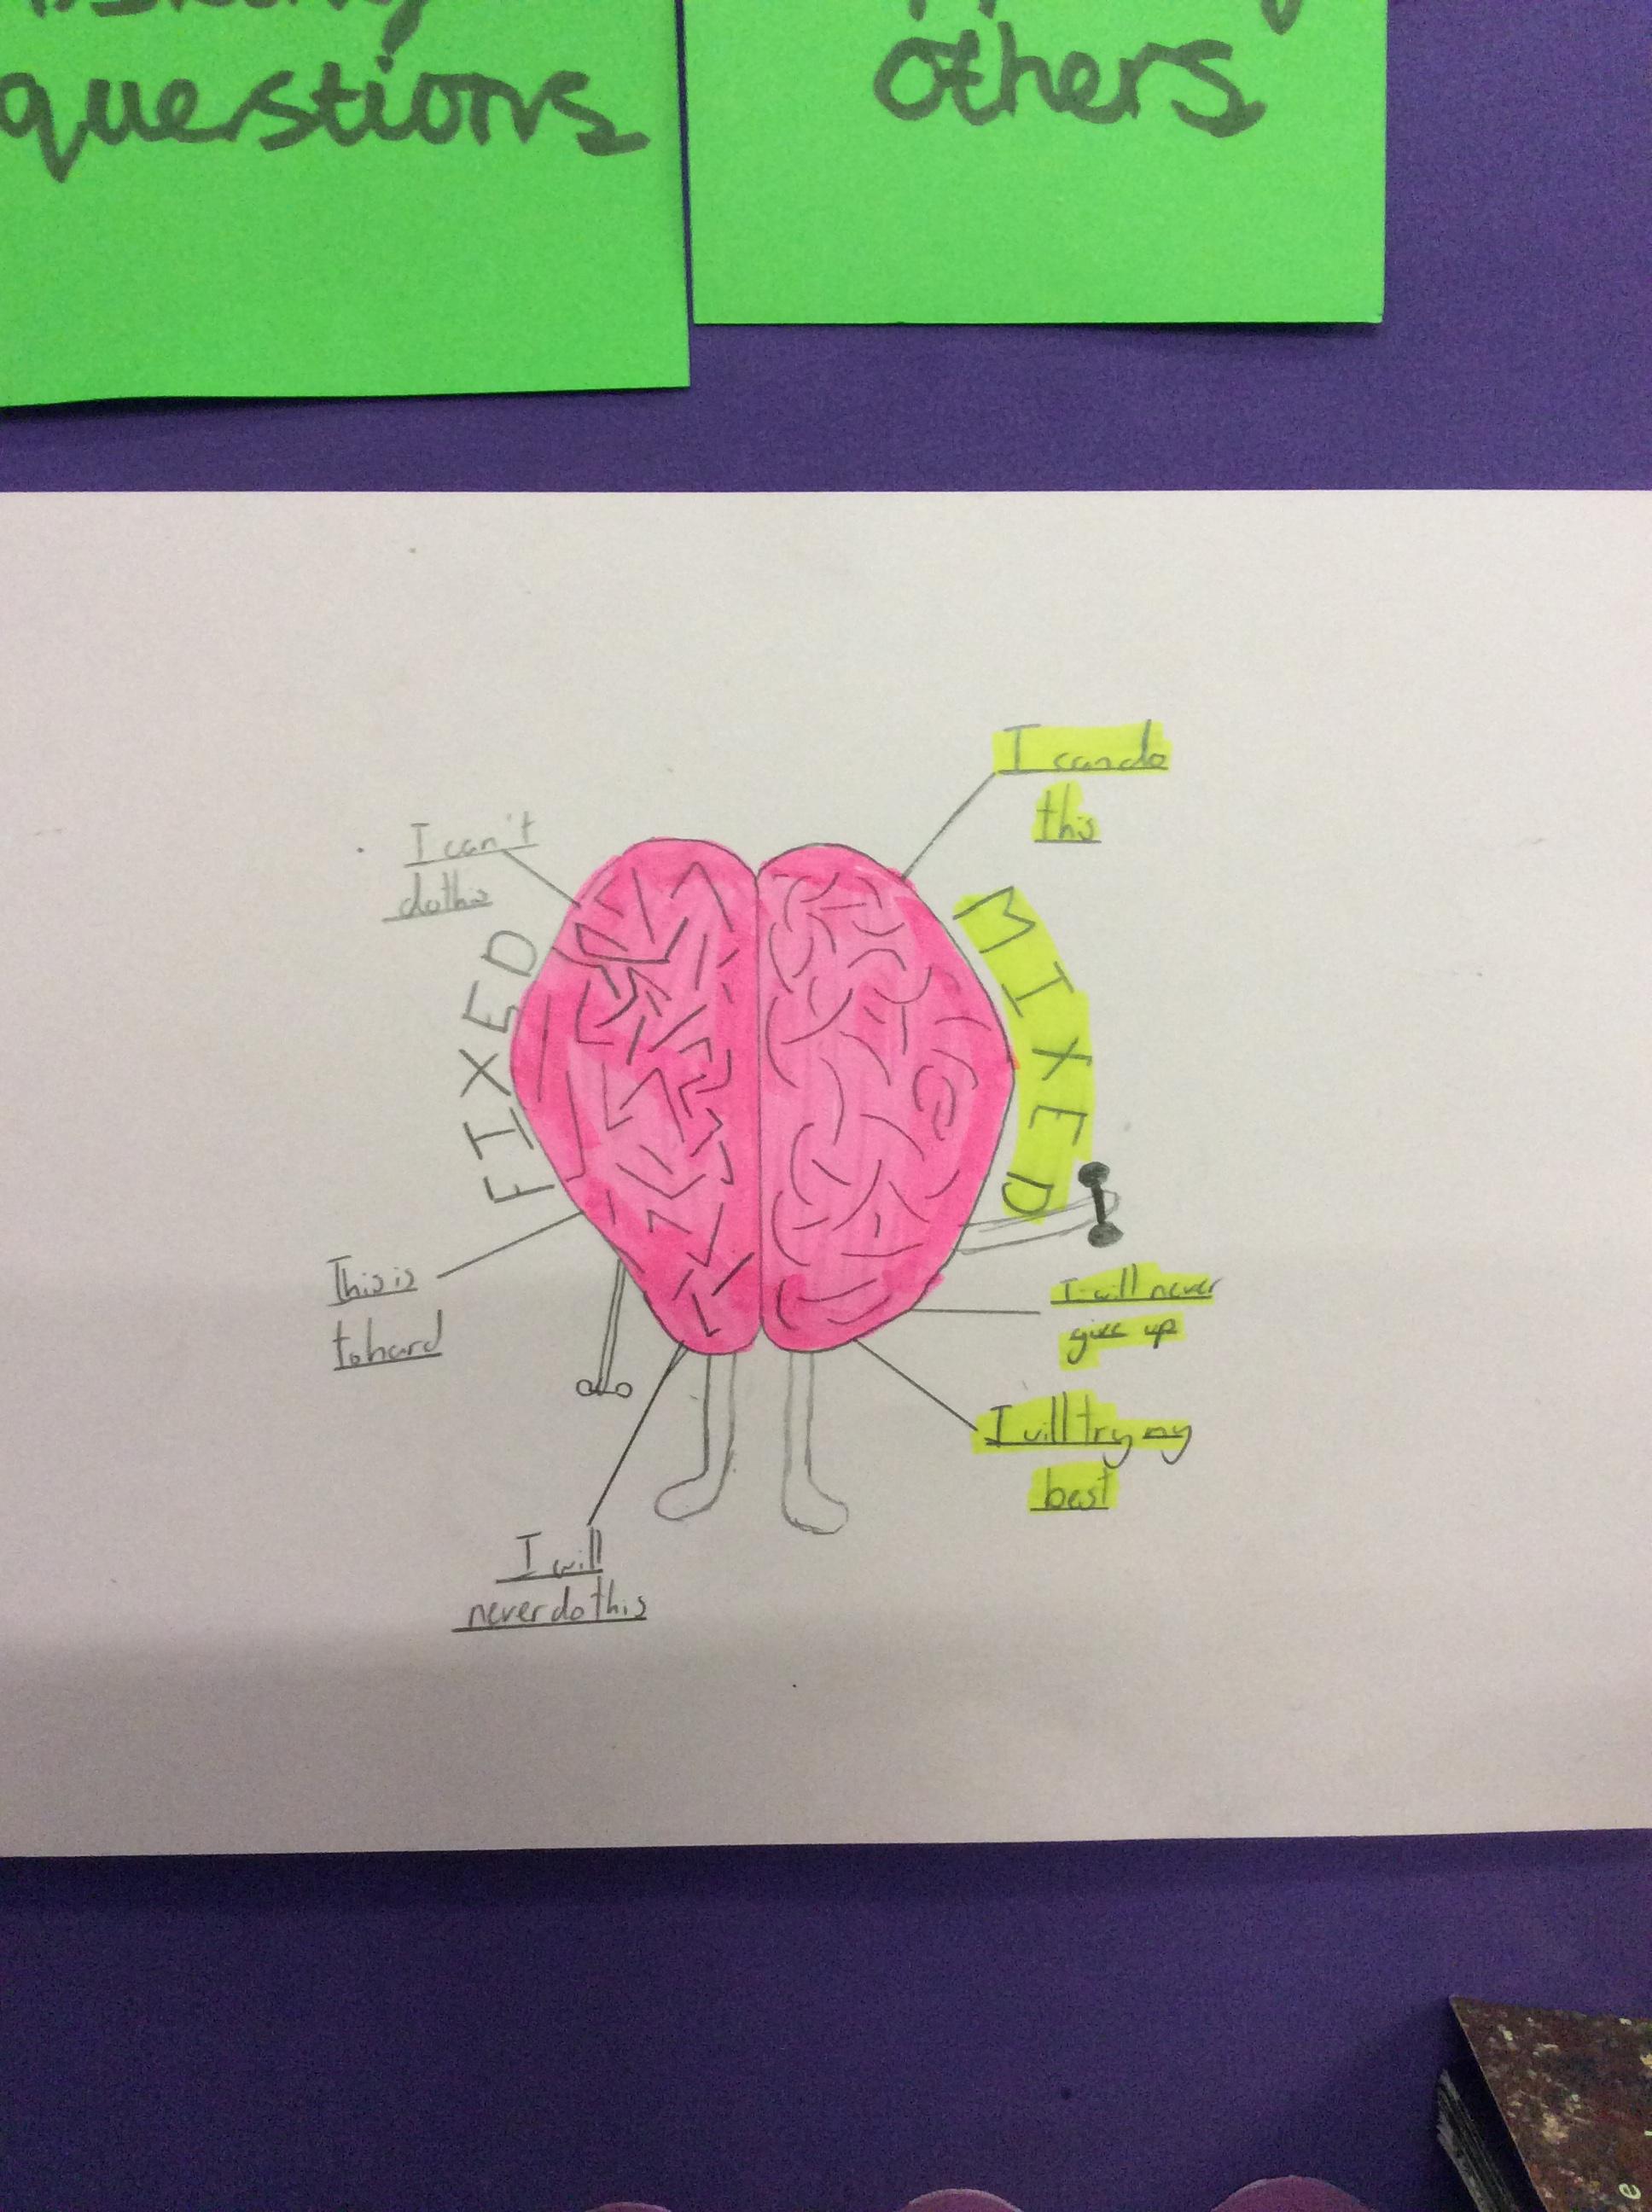 questions
others
I can do
this
I can't
do this
FIXED
MIXED
This is
to hard
I will never
give up
I will try my
best
I will
never do this